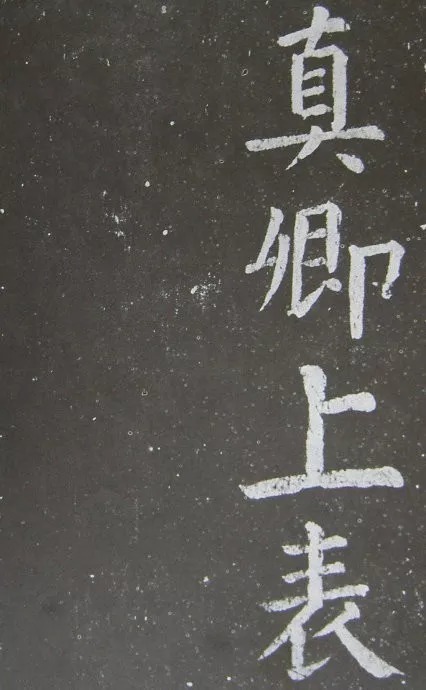 真卿上表